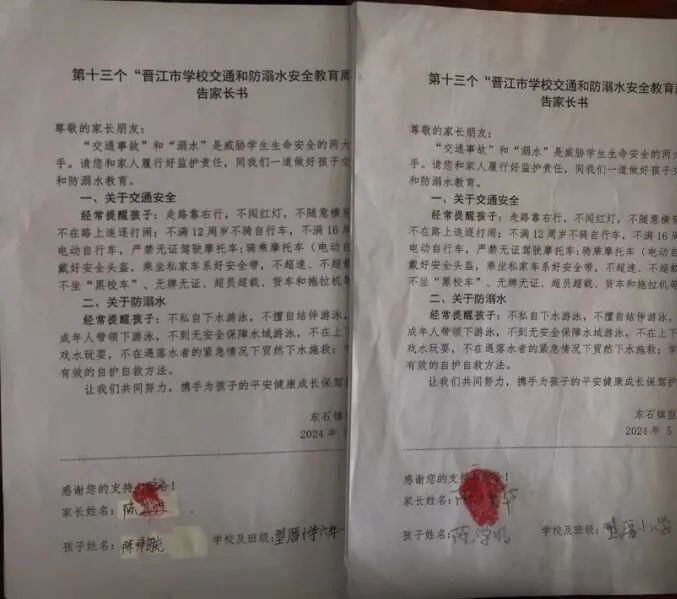 第十三个“晋江市学校交通和防溺水安全教育周
告家长书
尊敬的家长朋友：
“交通事故”和“溺水”是威胁学生生命安全的两大
手。请您和家人履行好监护责任，同我们一道做好孩子交
和防溺水教育。
一、关于交通安全
经常提醒孩子：走路靠右行，不闯红灯，不随意横穿
不在路上追逐打闹；不满 12 周岁不骑自行车，不满 16 周
电动自行车，严禁无证驾驶摩托车；骑乘摩托车（电动自
戴好安全头盔，乘坐私家车系好安全带，不超速、不超
不坐“黑校车”、无牌无证、超员超载，货车和拖拉机等
二、关于防溺水
经常提醒孩子：不私自下水游泳，不擅自结伴游泳，
成年人带领下游泳，不到无安全保障水域游泳，不在上下
戏水玩耍，不在遇落水者的紧急情况下贸然下水施救；学
有效的自护自救方法。
让我们共同努力，携手为孩子的平安健康成长保驾护
东石镇
2024 年 5
感谢您的支持与配合！
家长姓名：陈
孩子姓名：陈
学校及班级：型厝小学六年一
第十三个“晋江市学校交通和防溺水安全教育周
告家长书
尊敬的家长朋友：
“交通事故”和“溺水”是威胁学生生命安全的两大
手。请您和家人履行好监护责任，同我们一道做好孩子交
和防溺水教育。
一、关于交通安全
经常提醒孩子：走路靠右行，不闯红灯，不随意横穿
不在路上追逐打闹；不满 12 周岁不骑自行车，不满 16 周
电动自行车，严禁无证驾驶摩托车；骑乘摩托车（电动自
戴好安全头盔，乘坐私家车系好安全带，不超速、不超
不坐“黑校车”、无牌无证、超员超载，货车和拖拉机等
二、关于防溺水
经常提醒孩子：不私自下水游泳，不擅自结伴游泳，
成年人带领下游泳，不到无安全保障水域游泳，不在上下
戏水玩耍，不在遇落水者的紧急情况下贸然下水施救；学
有效的自护自救方法。
让我们共同努力，携手为孩子的平安健康成长保驾护
东石镇型
2024 年 5
感谢您的支持与配合！
家长姓名：陈 华
孩子姓名：陈学明
学校及班级：型厝小学